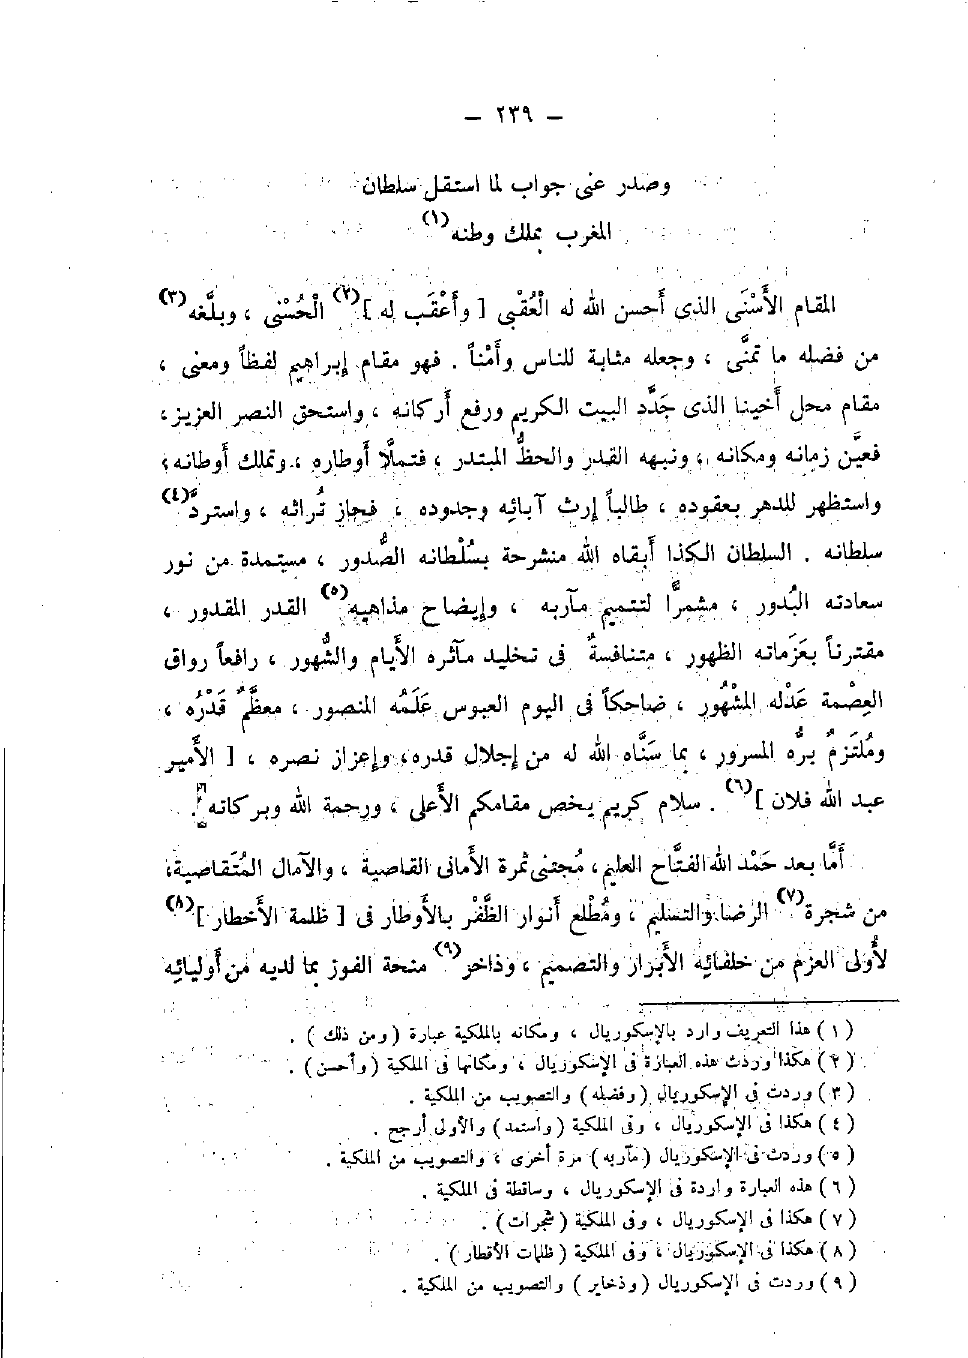 — ٢٣٩ —
وصدر عنى جواب لما استقل سلطان
المغرب بملك وطنه(١)
المقام الأَسْنَى الذى أَحسن الله له الْعُقْبى [ وأَعْقَب له ](٢) الْحُسْنى ، وبلَّغه(٣)
من فضله ما تمنَّى ، وجعله مثابة للناس وأَمْناً . فهو مقام إبراهيم لفظاً ومعنى ،
مقام محل أَخينا الذى جَدَّد البيت الكريم ورفع أَركانه ، واستحق النصر العزيز ،
فعيَّن زمانه ومكانه ، ونبهه القدر والحظُّ المبتدر ، فتملَّا أَوطاره ، وتملك أَوطانه ،
واستظهر للدهر بعقوده ، طالباً إرث آبائه وجدوده ، فحاز تُراثه ، واستردَّ(٤)
سلطانه . السلطان الكذا أَبقاه الله منشرحة بسُلْطانه الصُّدور ، مستمدة من نور
سعادته البُدور ، مشمرًا لتتميم مآربه ، وإيضاح مذاهبه(٥) القدر المقدور ،
مقترناً بعَزَماته الظهور ، متنافسةٌ فى تخليد مآثره الأَيام والشُّهور ، رافعاً رواق
العِصْمة عَدْله المشْهُور ، ضاحكاً فى اليوم العبوس عَلَمُه المنصور ، معظَّمٌ قَدْرُه ،
ومُلتَزمٌ برُّه المسرور ، بما سَنَّاه الله له من إجلال قدره، وإعزاز نصره ، [ الأَمير
عبد الله فلان ](٦) . سلام كريم يخص مقامكم الأَعلى ، ورحمة الله وبركاته .
أَمَّا بعد حَمْد الله الفتَّاح العليم، مُجتنى ثمرة الأَمانى القاصية ، والآمال المُتَقاصية،
من شجرة(٧) الرضا والتسليم ، ومُطْلع أَنوار الظَّفْر بالأَوطار فى [ ظلمة الأَخطار ](٨)
لأُولى العزم من خلفائه الأَبرار والتصميم ، وذاخر(٩) منحة الفوز بما لديه من أَوليائه
(١) هذا التعريف وارد بالإسكوريال ، ومكانه بالملكية عبارة (ومن ذلك ) .
(٢) هكذا وردت هذه العبارة فى الإسكوريال ، ومكانها فى الملكية (وأحسن) .
(٣) وردت فى الإسكوريال (وفضله) والتصويب من الملكية .
(٤) هكذا فى الإسكوريال ، وفى الملكية (واستمد) والأولى أرجح .
(٥) وردت فى الإسكوريال (مآربه) مرة أخرى ، والتصويب من الملكية .
(٦) هذه العبارة واردة فى الإسكوريال ، وساقطة فى الملكية .
(٧) هكذا فى الإسكوريال ، وفى الملكية (شجرات) .
(٨) هكذا فى الإسكوريال ، وفى الملكية (ظلمات الأقطار) .
(٩) وردت فى الإسكوريال (وذخاير) والتصويب من الملكية .